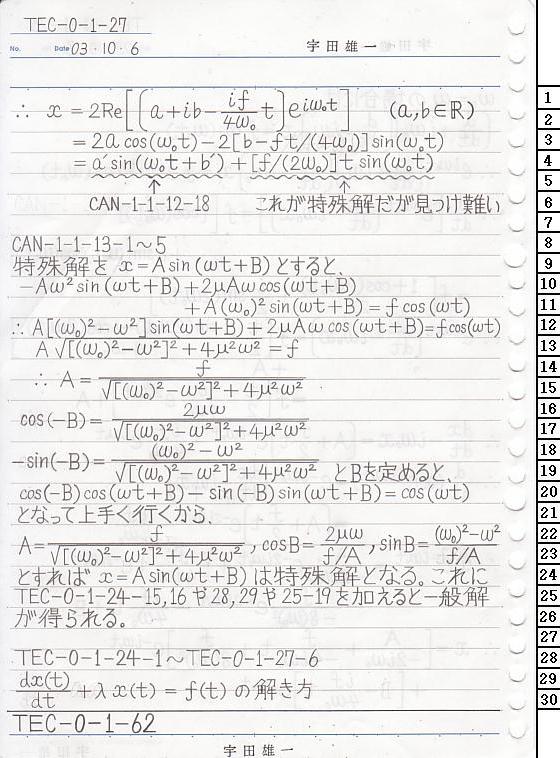 TEC-0-1-27
No. Date 03・10・6 宇田雄一
∴ x = 2Re[(a+ib-\frac{if}{4ω₀}t)e^{iω₀t}] (a,b∈ℝ)
= 2a cos(ω₀t)-2[b-ft/(4ω₀)]sin(ω₀t)
= a´sin(ω₀t+b´)+[f/(2ω₀)]t sin(ω₀t)
↑ ↑
CAN-1-1-12-18 これが特殊解だが見つけ難い
CAN-1-1-13-1~5
特殊解を x=Asin(ωt+B)とすると、
-Aω²sin(ωt+B)+2μAωcos(ωt+B)
+A(ω₀)²sin(ωt+B)=f cos(ωt)
∴A[(ω₀)²-ω²]sin(ωt+B)+2μAω cos(ωt+B)=f cos(ωt)
A√{[(ω₀)²-ω²]²+4μ²ω²} = f
∴ A = \frac{f}{√{[(ω₀)²-ω²]²+4μ²ω²}}
cos(-B)= \frac{2μω}{√{[(ω₀)²-ω²]²+4μ²ω²}}
-sin(-B)= \frac{(ω₀)²-ω²}{√{[(ω₀)²-ω²]²+4μ²ω²}} とBを定めると、
cos(-B)cos(ωt+B)-sin(-B)sin(ωt+B)=cos(ωt)
となって上手く行くから、
A= \frac{f}{√{[(ω₀)²-ω²]²+4μ²ω²}}, cosB= \frac{2μω}{f/A}, sinB= \frac{(ω₀)²-ω²}{f/A}
とすれば x=Asin(ωt+B)は特殊解となる。これに
TEC-0-1-24-15,16や28,29や25-19を加えると一般解
が得られる。
TEC-0-1-24-1~TEC-0-1-27-6
\frac{dx(t)}{dt}+λx(t)=f(t)の解き方
TEC-0-1-62
宇田雄一
1
2
3
4
5
6
7
8
9
10
11
12
13
14
15
16
17
18
19
20
21
22
23
24
25
26
27
28
29
30